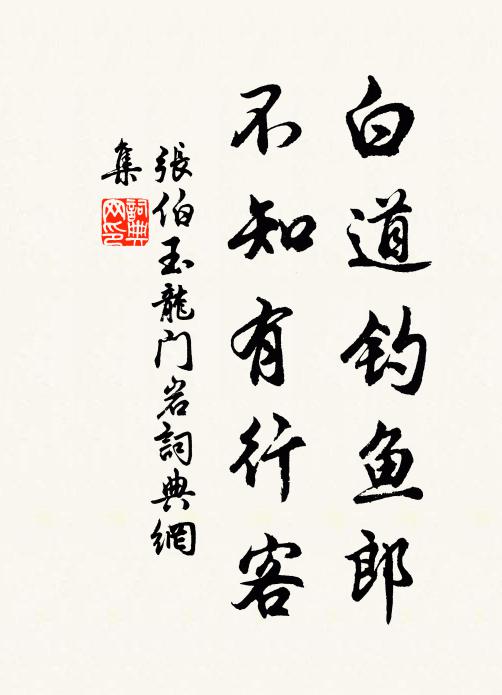 白道钓鱼郎
不知有行客
張伯玉龍门岩詞典網
集
詞典网印